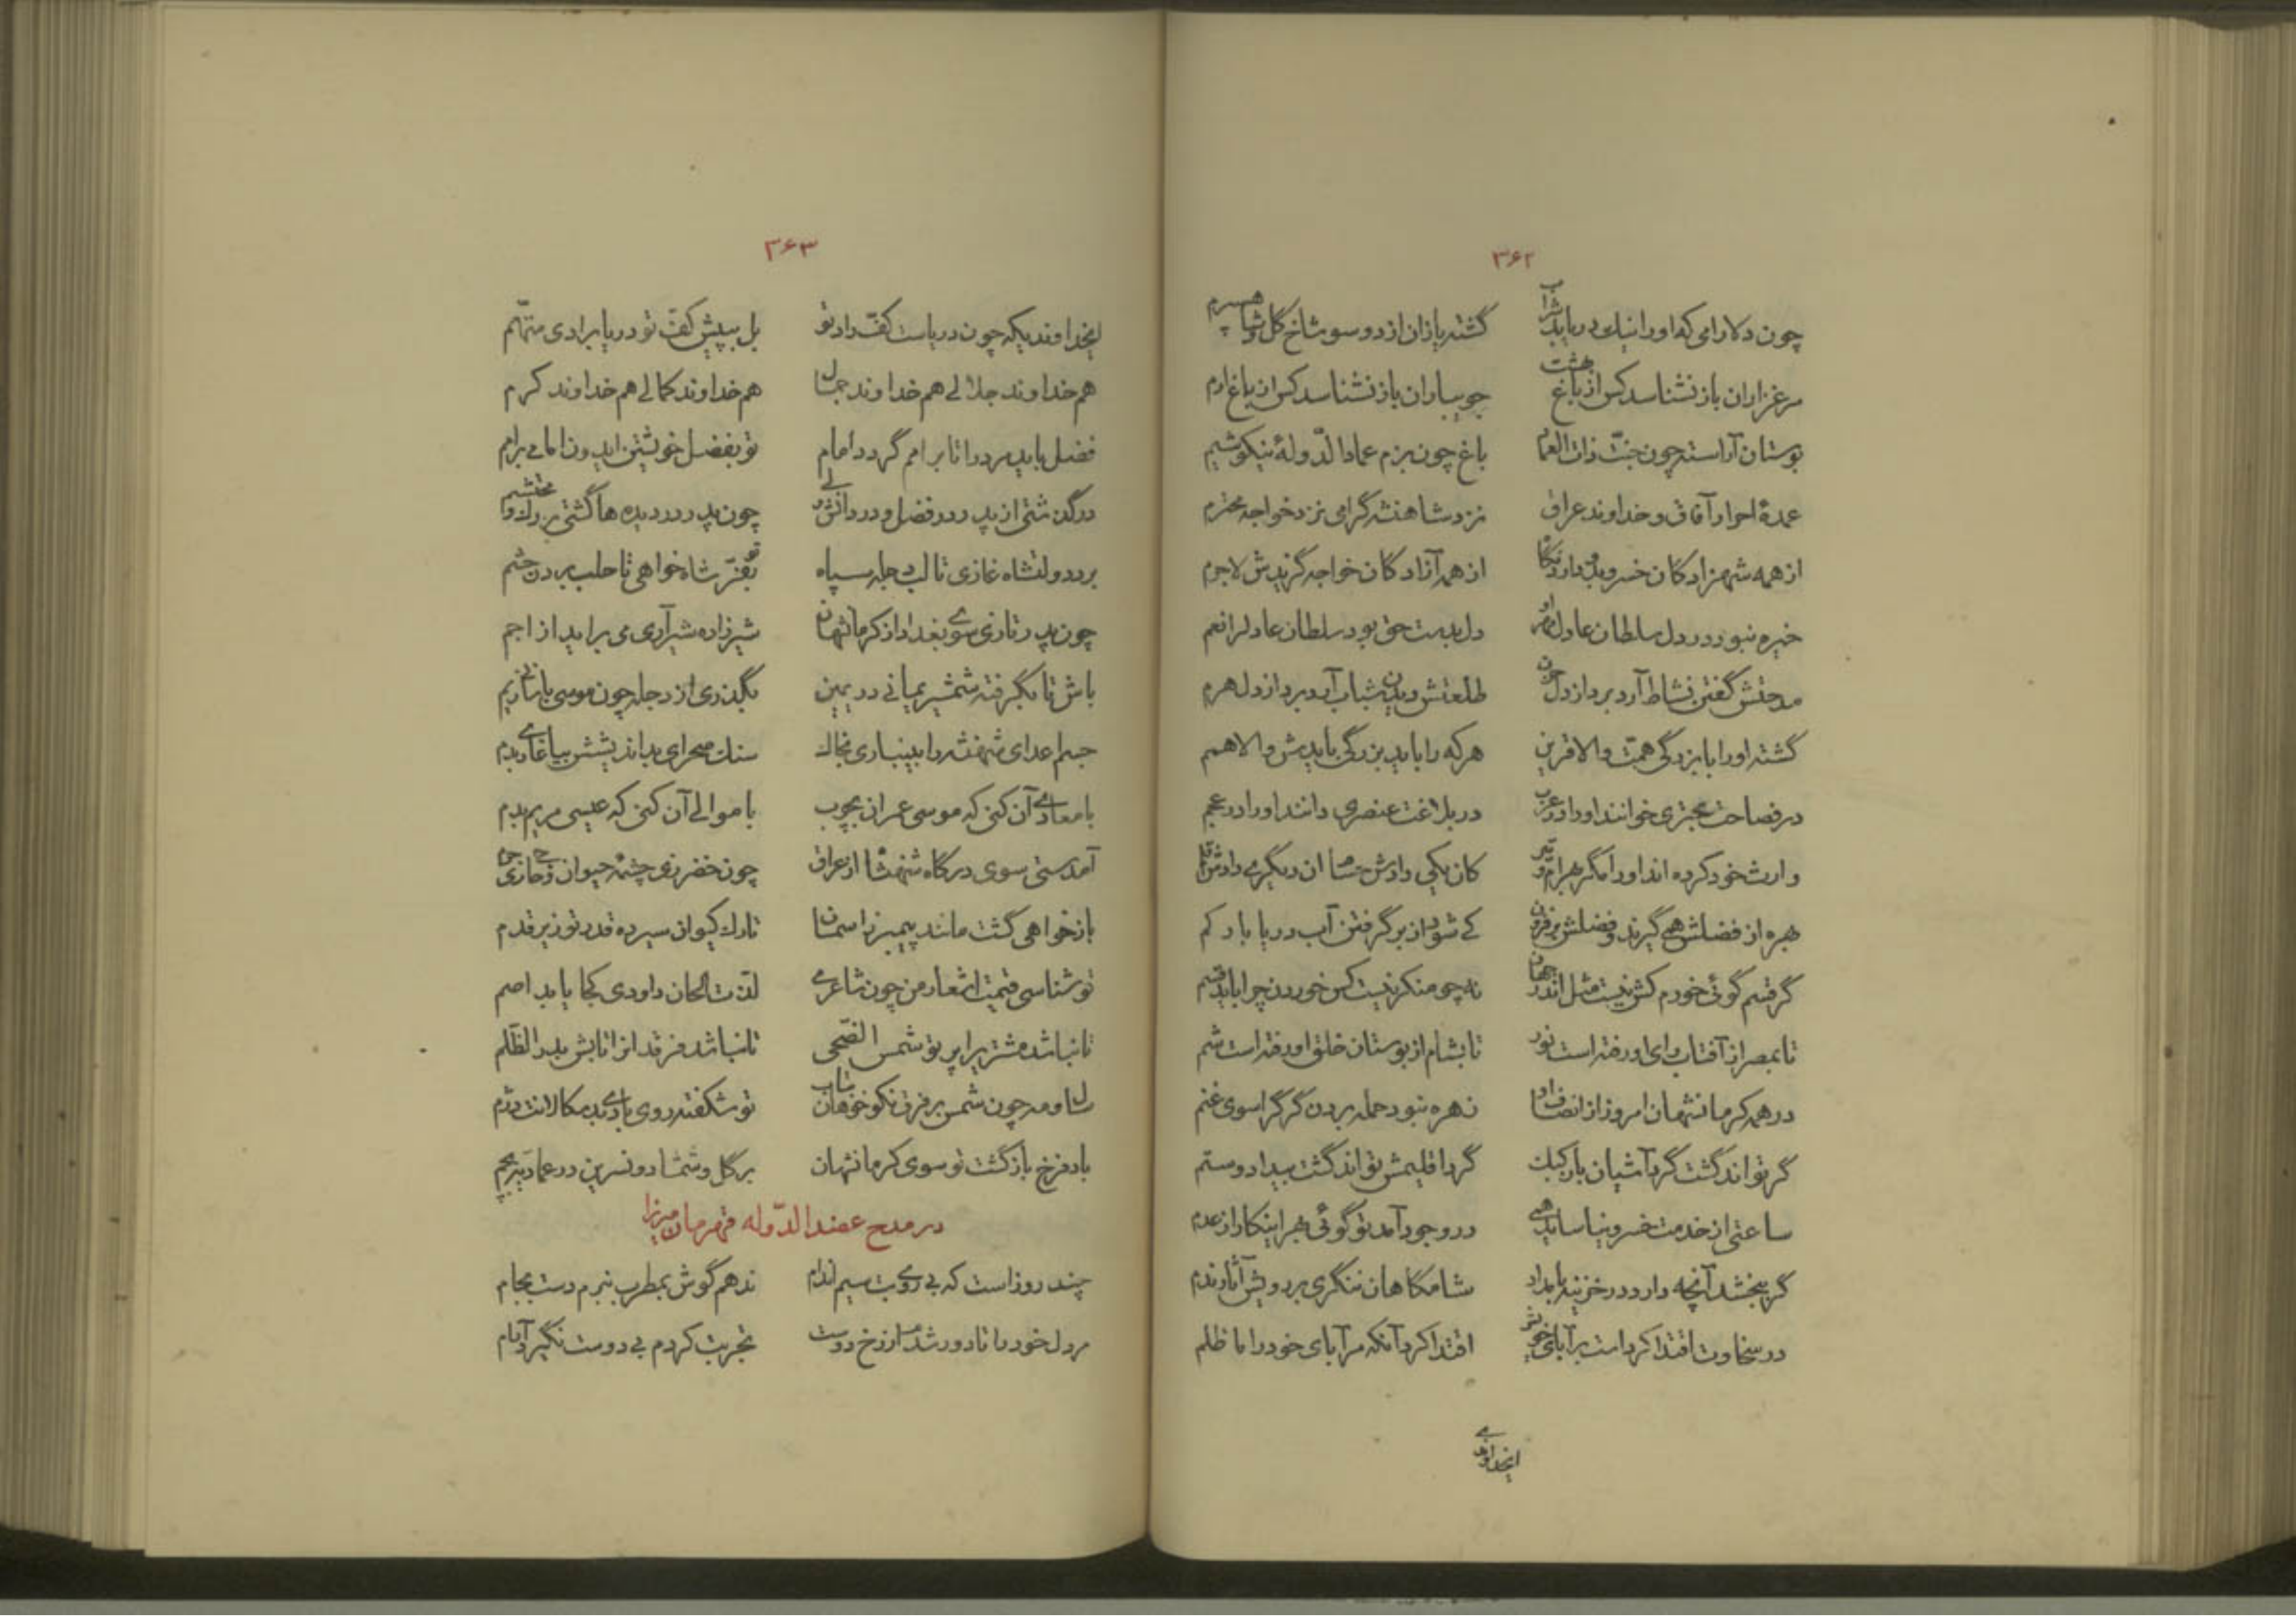 ۳۶۲
چون دلارامی که او را نیک دریابد شراب گشته یازان از دو سو شاخ گل و شاهسپرم
مرغزاران باز نشناسد کس از باغ بهشت جویباران باز نشناسد کس از باغ ارم
بوستان آراسته چون جنّت ذات العماد باغ چون بزم عماد الدّولهٔ نیکو شیم
عمدهٔ احرار آفاق و خداوند عراق نزد شاهنشه گرامی نزد خواجه محترم
از همه شهزادگان خسرو بدو دارد نگاه از همه آزادگان خواجه گزیدش لاجرم
خیره نبود در دل سلطان عادل مهر او دل بدست حق بود سلطان عادل را نعم
مدحتش گفتن نشاط آرد برد از دل حزن طلعتش دیدن شباب آرد برد از دل هرم
گشته او را با بزرگی همّت والا قرین هر که را باید بزرگی بایدش والا همم
در فصاحت بحتری خوانند او را در عرب در بلاغت عنصری دانند او را در عجم
وارث خود کرده‌اند او را مگر بهرام و تیر کان یکی دادش حسام ان دیگری دادش قلم
بهره از فضلش همی گیرند و فضلش بر فزون کی شود از بر گرفتن آب دریا بار کم
گرفتم گوئی خورم کش نیست مثل اندر جهان نه چو منکر نیست کس خوردن چرا باید قسم
تا بمصر از آفتاب رای او رفته است نور تا بشام از بوستان خلق او رفته است شم
در همه کرمانشهان امروز از انصاف او زهره نبود حمله بردن گرگ را سوی غنم
گر تواند گشت گرد آشیان باز کبک گرد اقلیمش تواند گشت بیداد و ستم
ساعتی از خدمت خسرو نیاساید همی در وجود آمد تو گوئی بهر اینکار از عدم
گر ببخشد آنچه دارد در خزینه بامداد شامگاهان ننگری بر رویش آثار ندم
در سخاوت اقتدا کرد است بر آبای خویش اقتدا کرد آنکه مر آبای خود را ما ظلم
ایخداوندی
۳۶۳
ایخداوندیکه چون دریاست کفّ راد تو بل به پیش کفّ تو دریا برادی متّهم
هم خداوند جلالی هم خداوند جمال هم خداوند کمالی هم خداوند کرم
فضل باید مرد را تا بر امم گردد امام تو بفضل خویشتن ایدون امامی بر امم
در گذشتی از پدر در فضل و در دانش ولی چون پدر در دیده‌ها گشتی بزرگ و محتشم
برد دولتشاه غازی تا لب دجله سپاه تو بفرّ شاه خواهی تا حلب بردن حشم
چون پدر تازی سوی بغداد از کرمانشهان شیرزاده شیر آری می براید از اجم
باش تا بگرفته شمشیر یمانی در یمین بگذری از دجله چون موسی بن عمران زیم
جسم اعدای شهنشه را بینباری بخاک سنگ صحرای بداندیشش بیاغاری بدم
با معادی آن کنی که موسی عمران بچوب با موالی آن کنی که عیسی مریم بدم
آمدستی سوی درگاه شهنشاه از عراق چون خضر زی چشمه حیوان و حاجی زی حرم
باز خواهی گشت مانند پیمبر ز اسمان تارک کیوان سپرده قدر تو زیر قدم
تو شناسی قیمت اشعار من چون شاعری لذّت الحان داودی کجا یابد اصم
تا نباشد مشتری را پرتو شمس الضّحی تا نباشد فرقدان را تابش بدر الظّلم
سال و مه چون شمس بر فرق نکوخواهان بتاب تو شکفته روی بادی بدسگالانت دژم
باد فرّخ بازگشت تو سوی کرمانشهان بر گل و شمشاد و نسرین در عمادیّه بچم
در مدح عضدالدّوله قهرمان میرزا
چند روز است که بی روی بت سیم اندام ندهم گوش بمطرب نبرم دست بجام
مر دل خود را تا دور شدم از رخ دوست تجربت کردم بی دوست نگیرد آرام